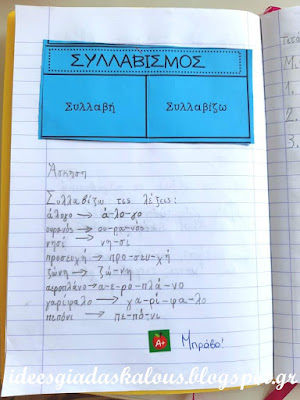 ΣΥΛΛΑΒΙΣΜΟΣ
Συλλαβή Συλλαβίζω
Άσκηση
Συλλαβίζω τις λέξεις:
άλογο → ά-λο-γο
ουρανός → ου-ρα-νός
νησί → νη-σί
προσευχή → προ-σευ-χή
ζώνη → ζώ-νη
αεροπλάνο → α-ε-ρο-πλά-νο
γαρίφαλο → γα-ρί-φα-λο
πεπόνι → πε-πό-νι
A+ Μπράβο!
ideesgiadaskalous.blogspot.gr
1.
2.
3.